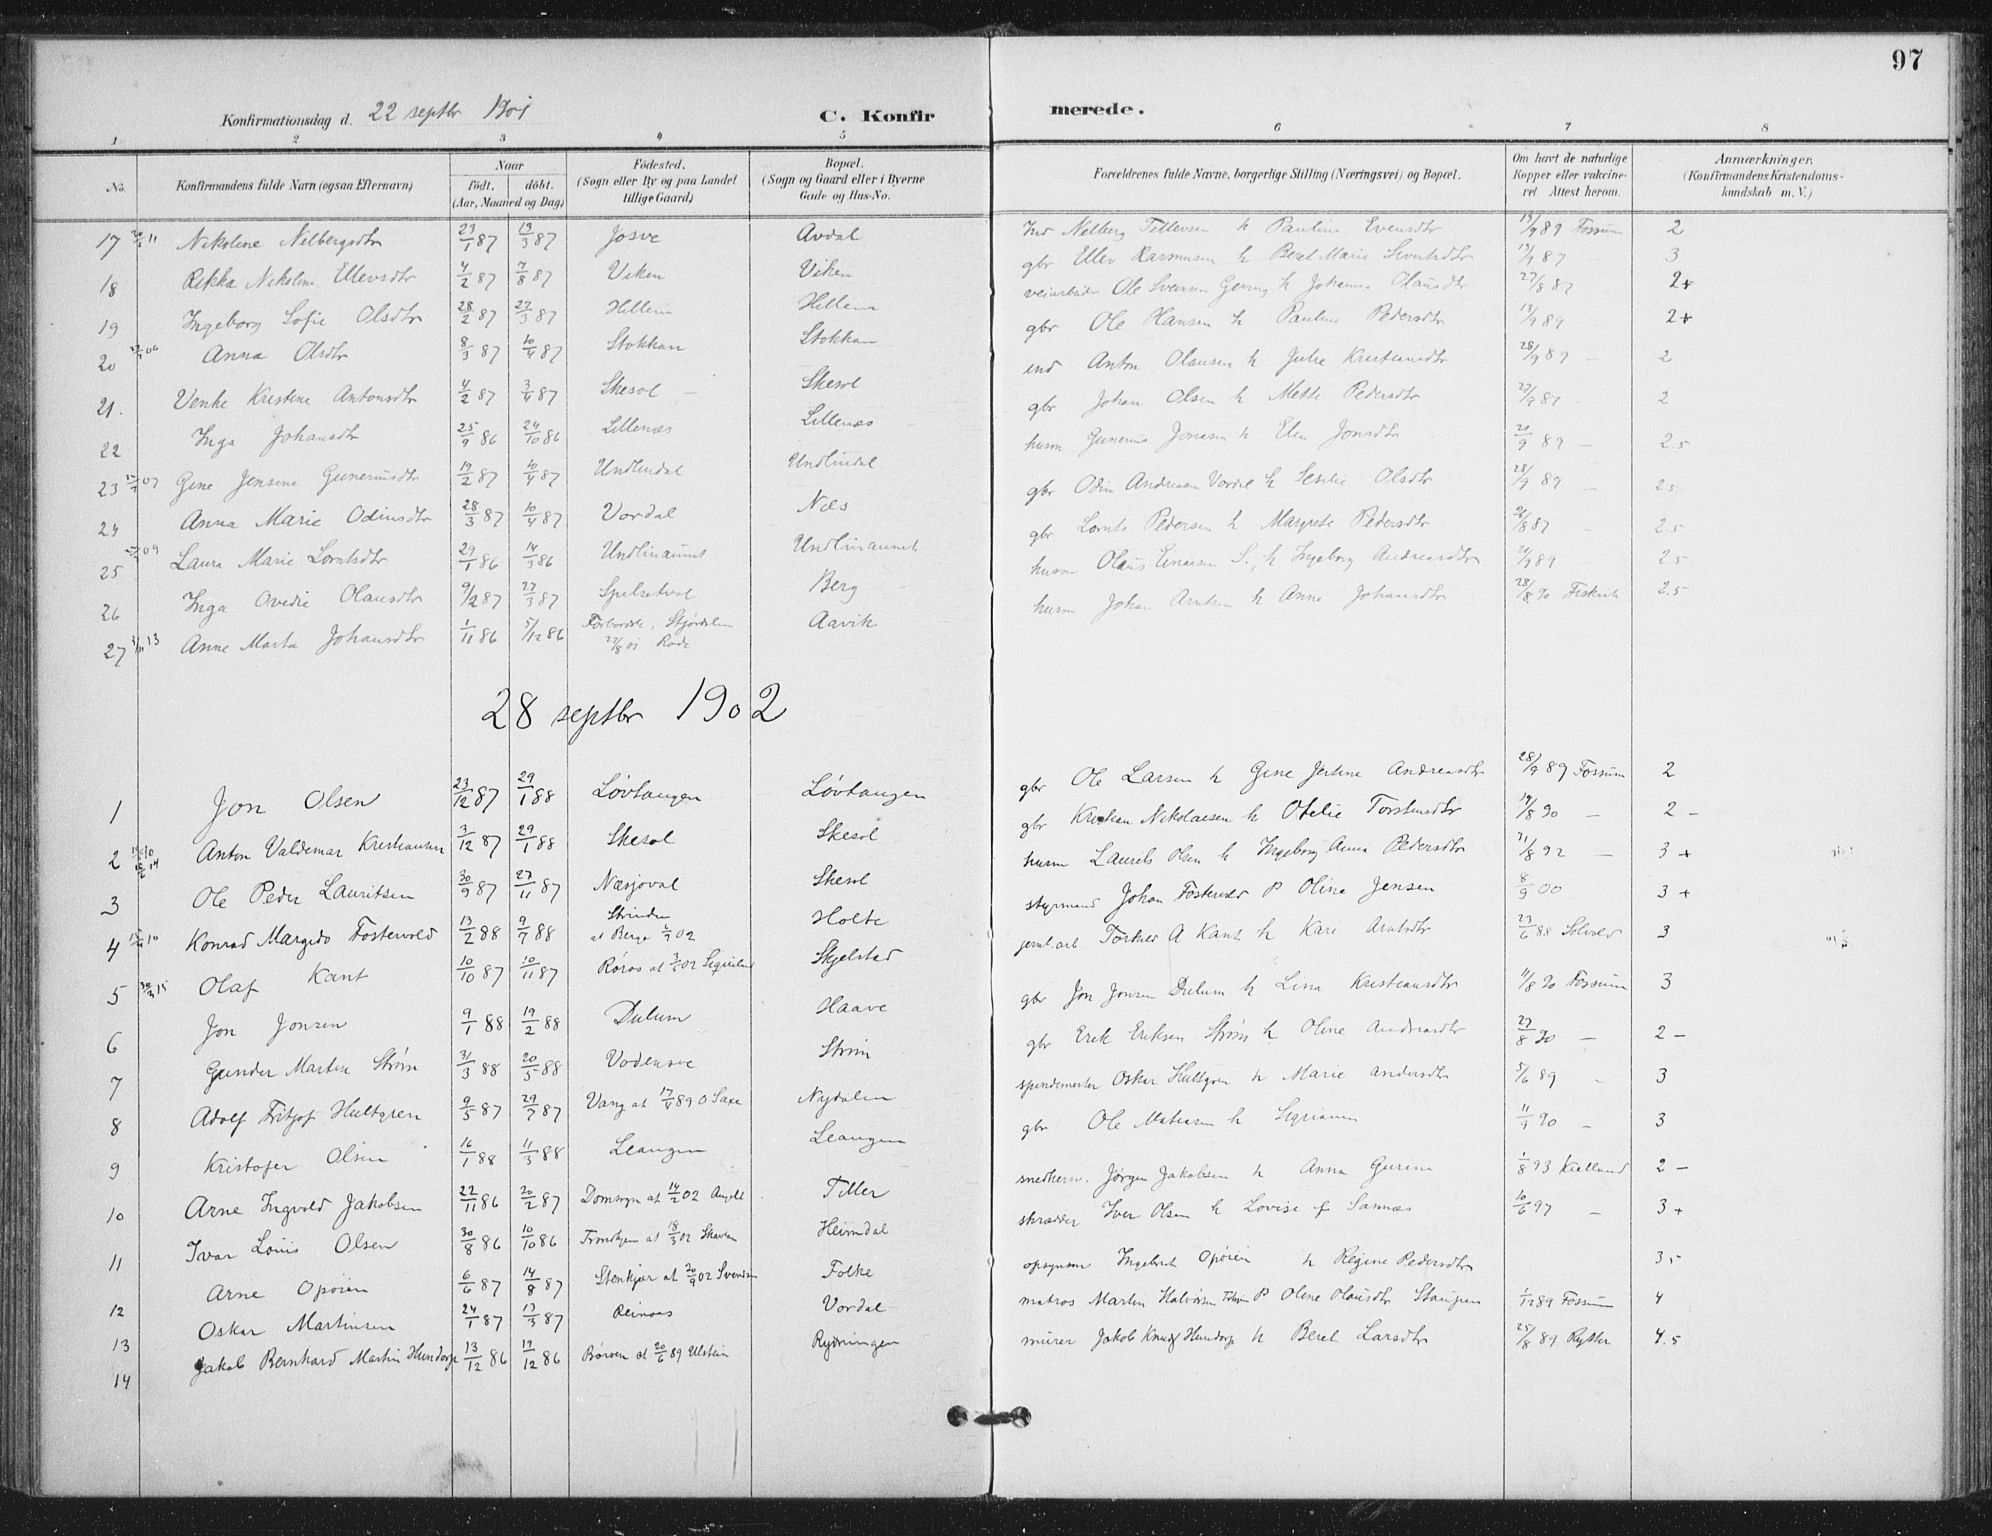 97
Konfirmationsdag d. 22 septbr 1901 C. Konfirmerede.
1 2 3 4 5 6 7 8
No. Konfirmandens fulde Navn (ogsaa Efternavn) Naar født. døbt. (Aar, Maaned og Dag) Fødested. (Sogn eller By og paa Landet tillige Gaard) Bopæl. (Sogn og Gaard eller i Byerne Gade og Hus-No. Forældrenes fulde Navne, borgerlige Stilling (Næringsvei) og Bopæl. Om havt de naturlige Kopper eller vakcineret Attest herom. Anmærkninger. (Konfirmandens Kristendomskundskab m. V.)
17 Nikoline Nilbergsdtr 23/1 87 13/3 87 Josve Avdal Ind Nilberg Tillevsen & Pauline Evensdtr 13/9 89 Fossum 2
18 Rikka Nikoline Ellevsdtr 4/2 87 7/8 87 Viken Viken gbr Ellev Rasmusen & Beret Marie Sivertsdtr 13/9 87 3
19 Ingeborg Sofie Olsdtr 28/2 87 27/3 87 Hillem Hillem veiarbeider Ole Svensen & Johanna Olausdtr 27/8 87 2+
20 Anna Olsdtr 8/3 87 10/4 87 Stokkan Stokkan gbr Ole Hansen & Pauline Pedersdtr 13/9 89 2+
21. Venke Kristine Antonsdtr 4/2 87 3/4 87 Skesol Skesol ind Anton Olausen & Julie Kristiansdtr 28/9 89 2
22 Inga Johansdtr 25/9 86 24/10 86 Lillenæs Lillenæs gbr Johan Olsen & Mette Pedersdtr 27/9 87 2
23 07 Gine Jensine Guneriusdtr 19/2 87 10/4 87 Undlindal Undlindal husm Gunerius Jonasen & Elen Jonsdtr 20/9 89 2.5
24 Anna Marie Odinsdtr 28/3 87 10/4 87 Vordal Næs gbr Odin Andreasen Vordal & Sesilie Olsdtr 28/9 89 25
25 09 Laura Marie Lorntsdtr 29/1 86 14/3 86 Undlinaunet Undlinaunet gbr Lornts Pedersen & Margrete Pedersdtr 26/8 87 2.5
26 Inga Ovedie Olausdtr 9/2 87 27/3 87 Spelsetval Berg husm Olaus Einarsen S. & Ingeborg Andreasdtr 9 89 25
27 13 Anne Marta Johansdtr 1/11 86 5/12 86 Forbordsk. Stjørdalen 27/8 01 Rode Aavik husm Johan Arntsen & Anne Johansdtr 28/8 90 Fiskvik 2.5
28 septbr 1902
1 Jon Olsen 23/12 87 29/1 88 Løvtangen Løvtangen gbr Ole Larsen & Gine Jertine Andreasdtr 28/9 89 Fossum 2
2 Anton Valdemar Kristiansen 3/12 87 29/1 88 Skesol Skesol gbr Kristian Nikolaisen & Otelie Torstensdtr 14/8 90 2 –
3 Ole Peder Lauritsen 30/9 87 27/11 87 Næsjoval Skesol husm Laurits Olsen & Ingeborg Anna Pedersdtr 31/8 92 3 +
4 10 Konrad Margido Fostervold 13/2 88 9/7 88 Strinden at Berge 6/9 02 Holte styrmand Johan Fostervold & Oline Jensen 8/9 00 3 +
5 15 Olaf Kant 10/10 87 10/11 87 Røros at 3/5 02 Skjelstad jernb.arb Torkild A Kant & Kari Arntsdtr 23/6 88 Solvold 3
6 Jon Jonsen 9/1 88 19/2 88 Dulum Haave gbr Jon Jonsen Dulum & Lina Kristiansdtr 11/8 90 Fossum 3
7 Gunder Martin Strøm 31/3 88 20/5 88 Vodensve Strøm gbr Erik Eriksen Strøm & Oline Andreasdtr 27/8 90 2 –
8 Adolf Fritjof Hultgren 9/5 87 29/7 87 Vang at 17/4 89 O Saxe Nydalen spindemester Oskar Hultgren & Marie Andersdtr 5/6 89 3
9 Kristofer Olsen 16/1 88 11/3 88 Leangen Leangen gbr Ole Matiasen & Sigrianna 11/9 90 3
10 Arne Ingvald Jakobsen 22/11 86 20/2 87 Domsogn at 14/2 02 Angell Tiller snedkersv. Jørgen Jakobsen & Anna Gurine 1/8 93 Kielland 2 –
11 Ivar Louis Olsen 30/8 86 10/10 86 Trondhjem at 18/3 02 Skavan Heimdal skrædder Iver Olsen & Lovise f Sannæs 10/6 97 3 +
12 Arne Opøien 6/6 87 14/8 87 Stenkjær at 20/9 02 Svendsen Folke opsynsm Ingebret Opøien & Regine Pedersdtr 35
13 Oskar Martinsen 24/1 87 13/3 87 Reinaas Vordal matros Martin Halvorsen & Oline Olausdtr Staupen 1/12 89 Fossum 4
14 Jakob Bernhard Martin Hundorp 13/12 86 19/12 86 Børsen at 20/6 89 Ulstein Rydningen murer Jakob Knuds Hundorp & Beret Larsdtr 25/8 89 Rytter 4.5